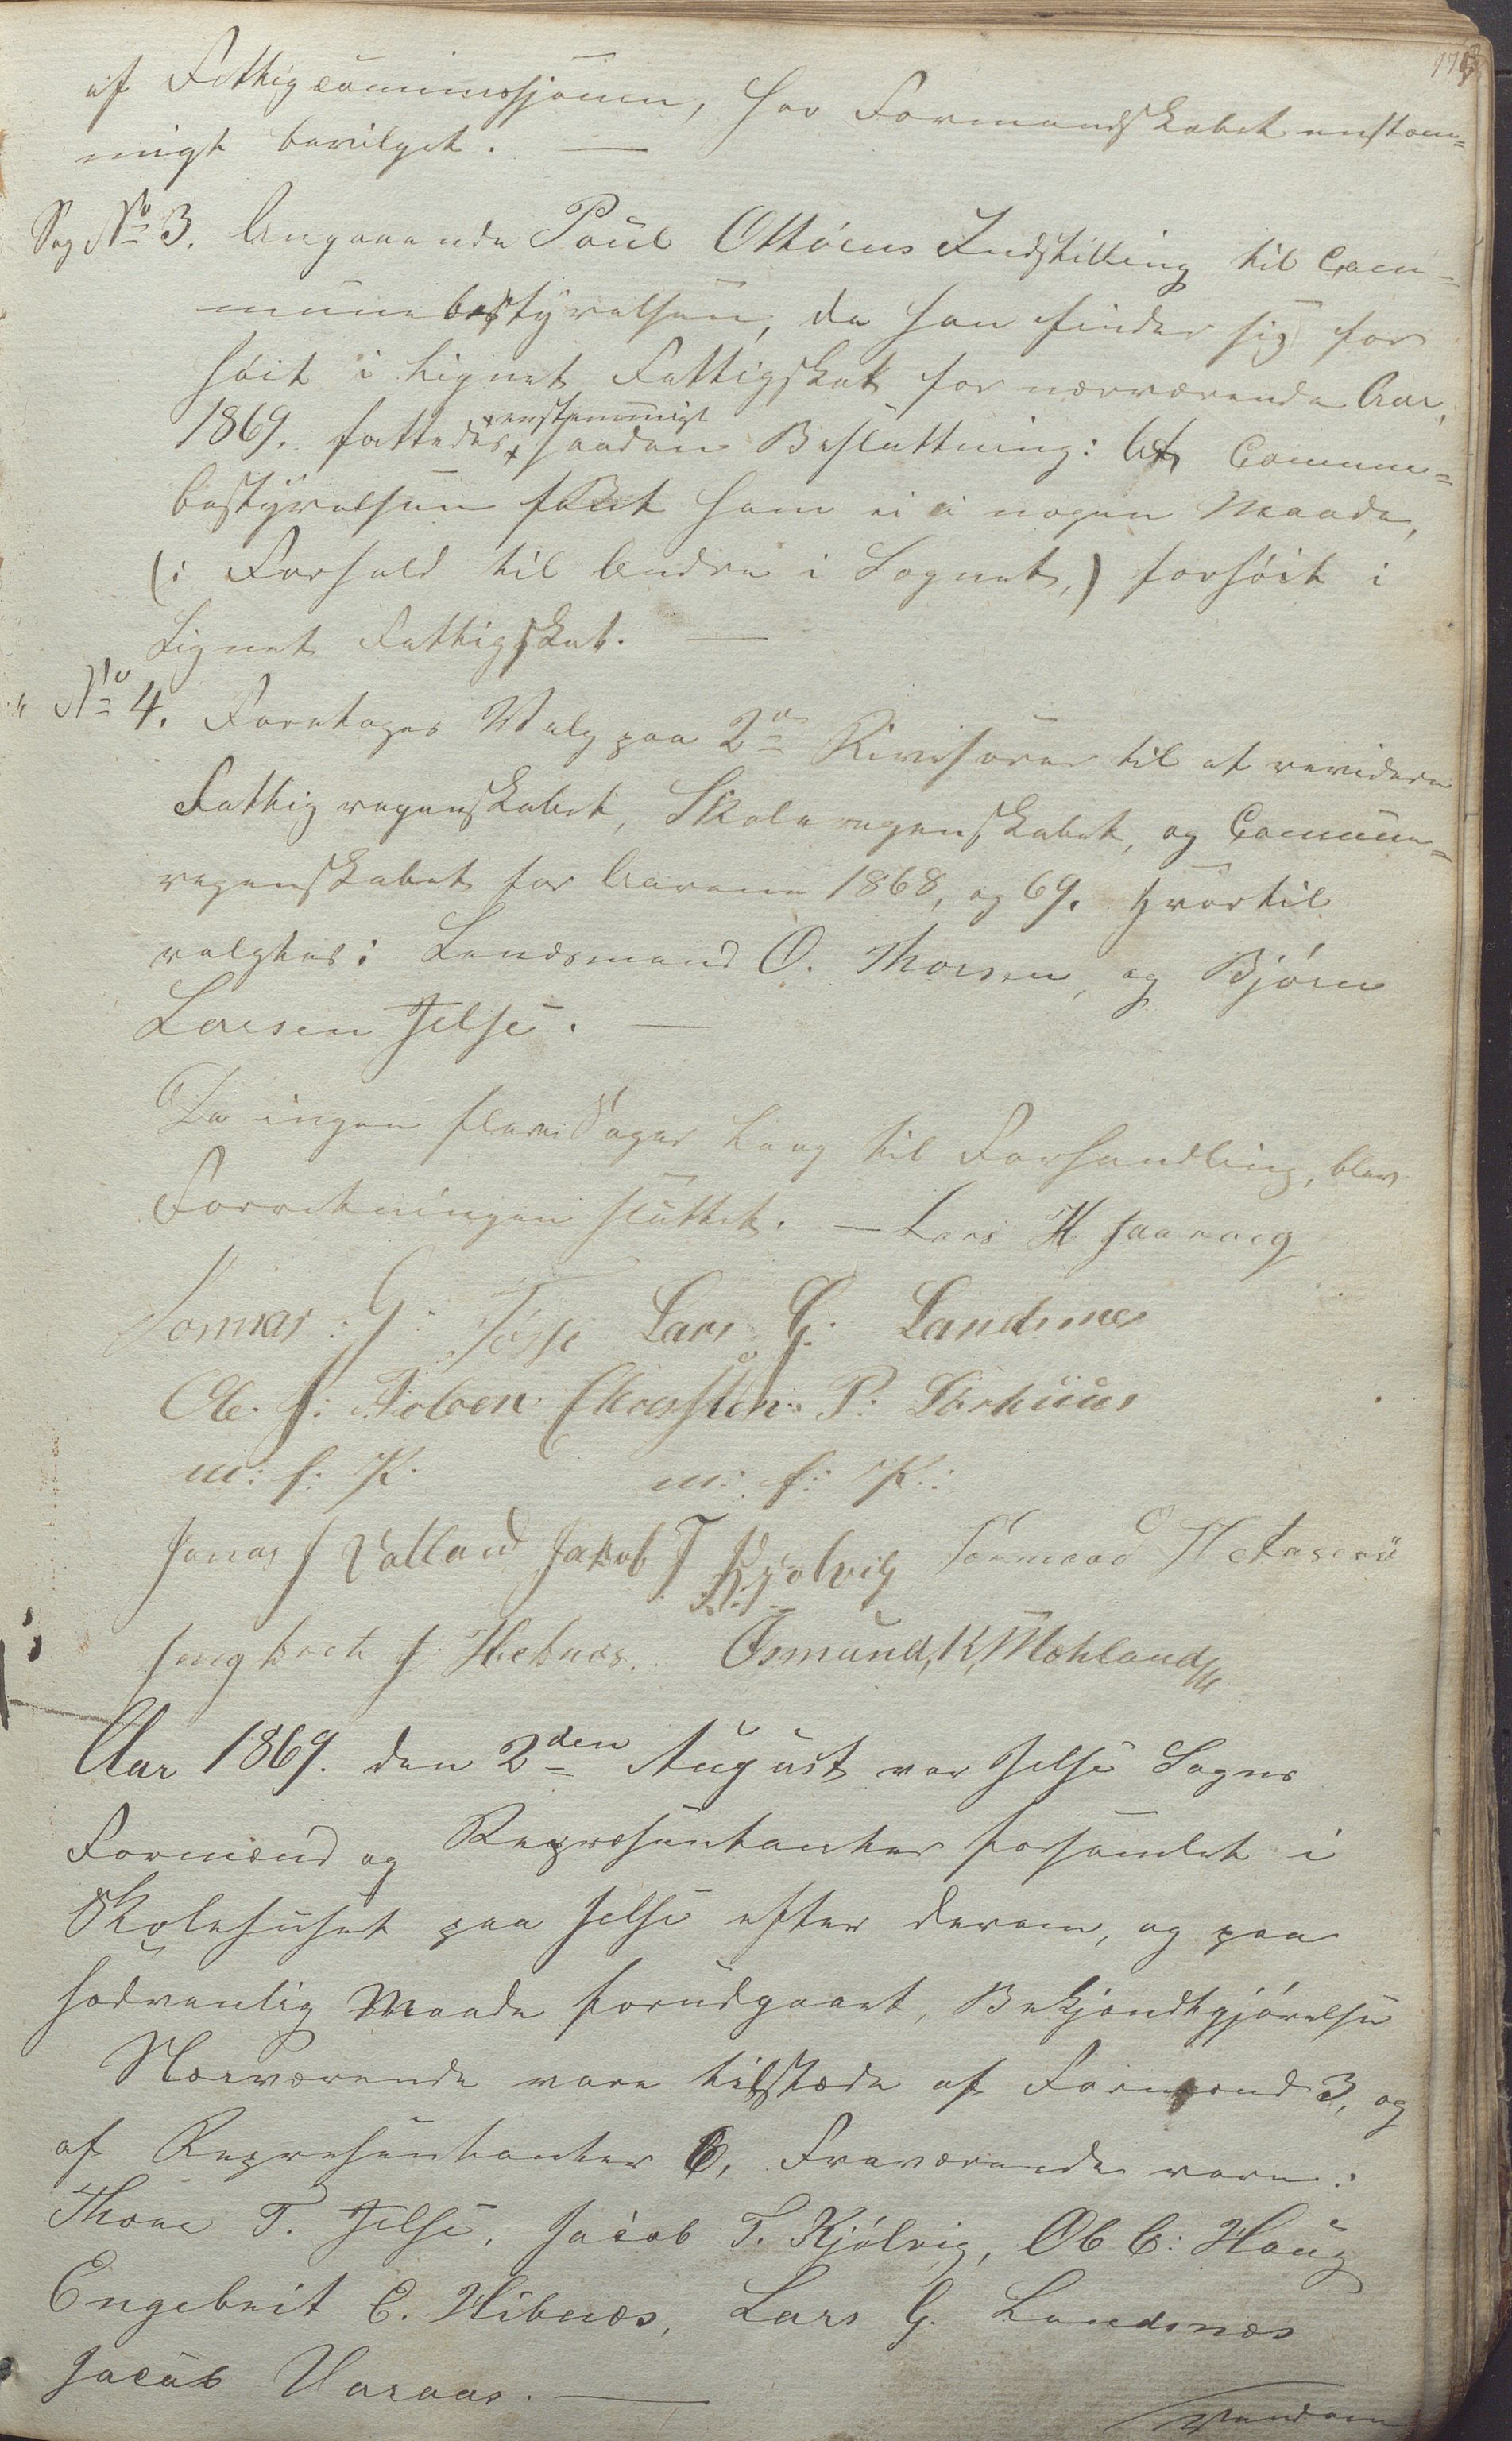 af Fattigcommissjonen, har Formandskabet enstem=
migt bevilget. —
Sag No 3. Angaaende Poul Ottøens Indstilling til Com=
munebestyrelsen, da han finder sig for
høit i Lignet Fattigskat for nærværende Aar,
enstemmigt
1869. fattedes saadan Besluttning: At Commune=
bestyrelsen fandt ham ei i nogen Maade,
(i Forhold til Andre i Sognet,) forhøit i
Lignet Fattigskat. —
" No 4. Foretages Valg paa 2de Revisorer til at revidere
Fattigregenskabet, Skoleregenskabet, og Commune=
regenskabet for Aarene 1868, og 69. Hvortil
valgtes: Lensmand O. Thorsen, og Bjørn
Larsen Jelse. —
Da ingen flere Sager laag til Forhandling, blev
Forretningen sluttet. — Lars H Saaraag
Tormas: G. Føsse Lars G. Landsnes
Ole. J: Foloen Christen P: Barkuus
m: f: P. m: f: P.:
Jonas J Valland Jakob T Kjølvig Tormaad H
Jengbret J. Hebnæs. Osmund, K, Mæhland
Aar 1869. den 2den August var Jelse Sogns
Formænd og Repræsentanter forsamlet i
Skolehuset paa Jelse efter derom, og paa
sædvanlig Maade forudgaaet, Bekjendtgjørelse
Nærværende vare tilstæde af Formænd 3, og
af Repræsentanter 6, Fraværende vare:
Thore T. Jelse, Jacob T. Kjølvig, Ole C: Haug
Engebrit E. Hibnæs, Lars G. Landsnæs
Jacob Varaas. —
Vendom